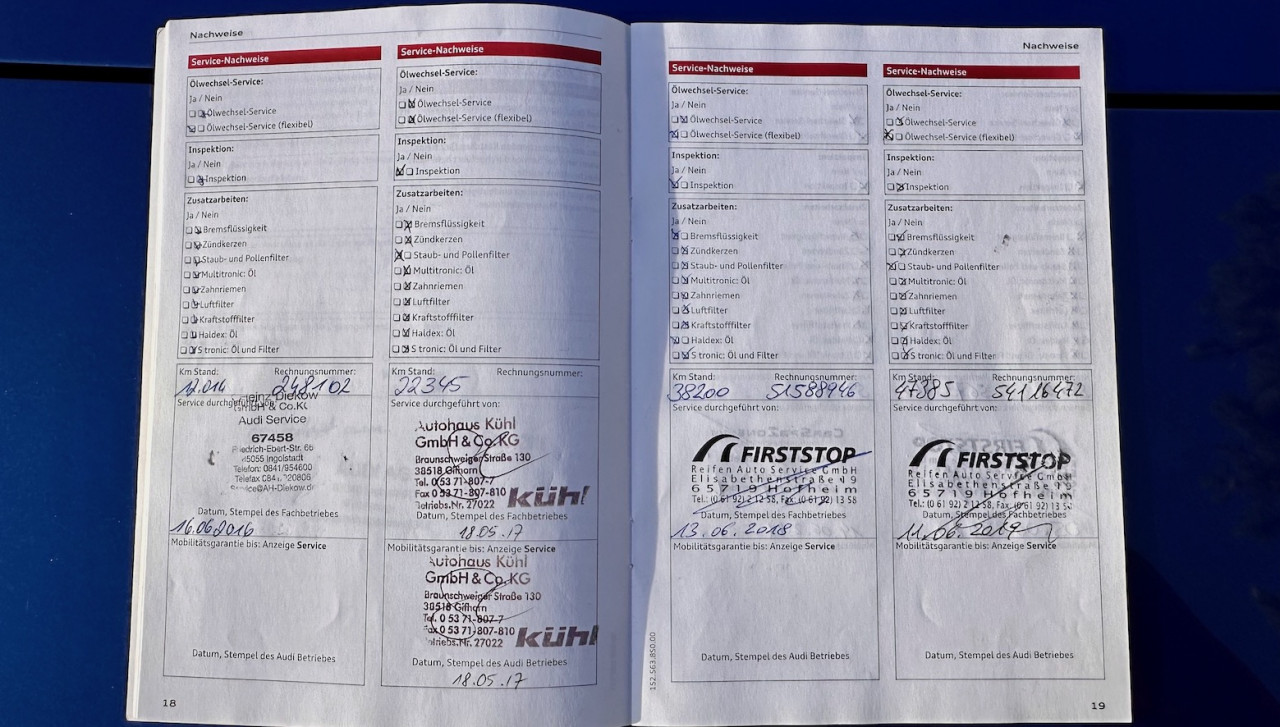 Nachweise
Service-Nachweise
Ölwechsel-Service:
Ja / Nein
Ölwechsel-Service
Ölwechsel-Service (flexibel)
Inspektion:
Ja / Nein
Inspektion
Zusatzarbeiten:
Ja / Nein
Bremsflüssigkeit
Zündkerzen
Staub- und Pollenfilter
Multitronic: Öl
Zahnriemen
Luftfilter
Kraftstofffilter
Haldex: Öl
S tronic: Öl und Filter
Km Stand: Rechnungsnummer:
12.016 248102
Service durchgeführt von:
Heinz Diekow
GmbH & Co.KG
Audi Service
67458
Friedrich-Ebert-Str. 66
85055 Ingolstadt
Telefon: 0841/954600
Datum, Stempel des Fachbetriebes
16.06.2016
Mobilitätsgarantie bis: Anzeige Service
Datum, Stempel des Audi Betriebes
18
Service-Nachweise
Ölwechsel-Service:
Ja / Nein
Ölwechsel-Service
Ölwechsel-Service (flexibel)
Inspektion:
Ja / Nein
Inspektion
Zusatzarbeiten:
Ja / Nein
Bremsflüssigkeit
Zündkerzen
Staub- und Pollenfilter
Multitronic: Öl
Zahnriemen
Luftfilter
Kraftstofffilter
Haldex: Öl
S tronic: Öl und Filter
Km Stand: Rechnungsnummer:
22345
Service durchgeführt von:
Autohaus Kühl
GmbH & Co. KG
Braunschweiger Straße 130
38518 Gifhorn
Tel. 0 53 71-807-7
Fax 0 53 71-807-810
Betriebs.Nr. 27022 kühl
Datum, Stempel des Fachbetriebes
18.05.17
Mobilitätsgarantie bis: Anzeige Service
Autohaus Kühl
GmbH & Co. KG
Braunschweiger Straße 130
38518 Gifhorn
Tel. 0 53 71-807-7
Fax 0 53 71-807-810
Betriebs.Nr. 27022 kühl
Datum, Stempel des Audi Betriebes
18.05.17
Nachweise
Service-Nachweise
Ölwechsel-Service:
Ja / Nein
Ölwechsel-Service
Ölwechsel-Service (flexibel)
Inspektion:
Ja / Nein
Inspektion
Zusatzarbeiten:
Ja / Nein
Bremsflüssigkeit
Zündkerzen
Staub- und Pollenfilter
Multitronic: Öl
Zahnriemen
Luftfilter
Kraftstofffilter
Haldex: Öl
S tronic: Öl und Filter
Km Stand: Rechnungsnummer:
38200 51588946
Service durchgeführt von:
FIRSTSTOP
Reifen Auto Service GmbH
Elisabethenstraße 19
65719 Hofheim
Tel.: (0 61 92) 2 12 58, Fax (0 61 92) 13 58
Datum, Stempel des Fachbetriebes
13.06.2018
Mobilitätsgarantie bis: Anzeige Service
Datum, Stempel des Audi Betriebes
152.563.850.00
Service-Nachweise
Ölwechsel-Service:
Ja / Nein
Ölwechsel-Service
Ölwechsel-Service (flexibel)
Inspektion:
Ja / Nein
Inspektion
Zusatzarbeiten:
Ja / Nein
Bremsflüssigkeit
Zündkerzen
Staub- und Pollenfilter
Multitronic: Öl
Zahnriemen
Luftfilter
Kraftstofffilter
Haldex: Öl
S tronic: Öl und Filter
Km Stand: Rechnungsnummer:
47885 54116472
Service durchgeführt von:
FIRSTSTOP
Reifen Auto Service GmbH
Elisabethenstraße 19
65719 Hofheim
Tel.: (0 61 92) 2 12 58, Fax (0 61 92) 13 58
Datum, Stempel des Fachbetriebes
11.06.2019
Mobilitätsgarantie bis: Anzeige Service
Datum, Stempel des Audi Betriebes
19